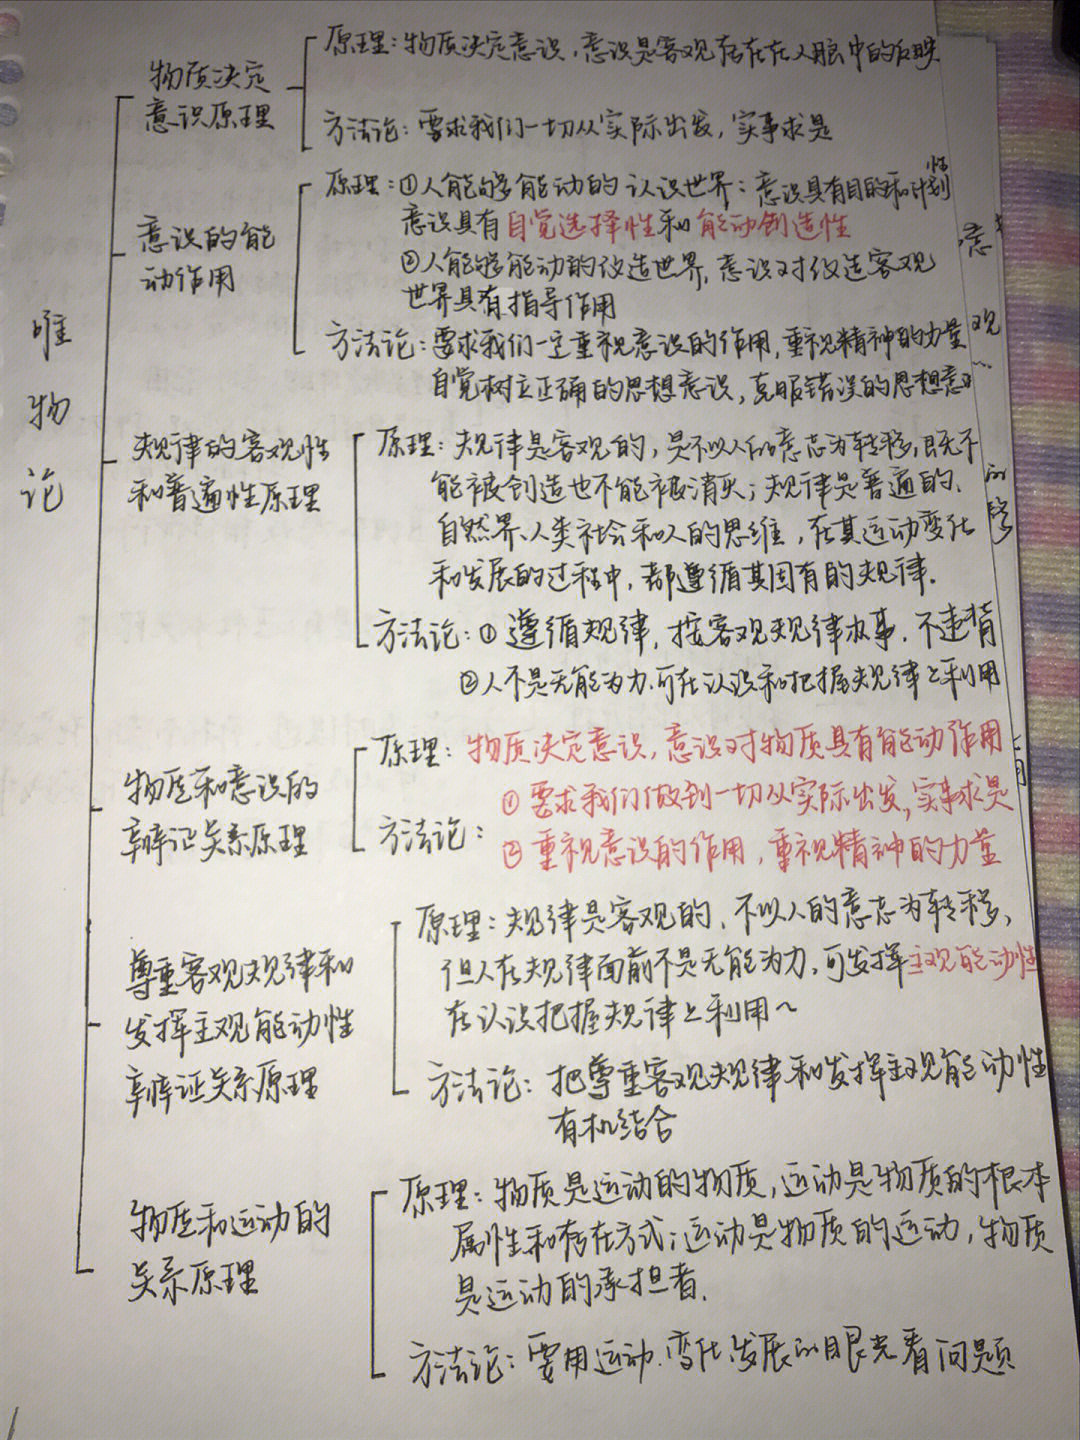 唯物论
物质决定
意识原理
原理:物质决定意识,意识是客观存在在人脑中的反映
方法论:要求我们一切从实际出发,实事求是
意识的能
动作用
原理:①人能够能动的认识世界:意识具有目的和计划性
意识具有自觉选择性和能动创造性
②人能够能动的改造世界,意识对改造客观
世界具有指导作用
方法论:要求我们一定重视意识的作用,重视精神的力量
自觉树立正确的思想意识,克服错误的思想意识
规律的客观性
和普遍性原理
原理:规律是客观的,是不以人的意志为转移,既不
能被创造也不能被消灭;规律是普遍的、
自然界、人类社会和人的思维,在其运动变化
和发展的过程中,都遵循其固有的规律.
方法论:①遵循规律,按客观规律办事,不违背
②人不是无能为力.可在认识和把握规律上利用
物质和意识的
辩证关系原理
原理:物质决定意识,意识对物质具有能动作用
方法论:
①要求我们做到一切从实际出发,实事求是
②重视意识的作用,重视精神的力量
尊重客观规律和
发挥主观能动性
辩证关系原理
原理:规律是客观的,不以人的意志为转移,
但人在规律面前不是无能为力,可发挥主观能动性
在认识把握规律上利用~
方法论:把尊重客观规律和发挥主观能动性
有机结合
物质和运动的
关系原理
原理:物质是运动的物质,运动是物质的根本
属性和存在方式;运动是物质的运动,物质
是运动的承担者.
方法论:要用运动.变化.发展的眼光看问题